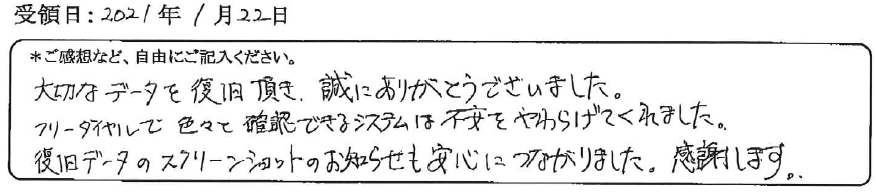 受領日：2021年 1月22日
＊ご感想など、自由にご記入ください。
大切なデータを復旧頂き、誠にありがとうございました。
フリーダイヤルで色々と確認できるシステムは不安をやわらげてくれました。
復旧データのスクリーンショットのお知らせも安心につながりました。感謝します。